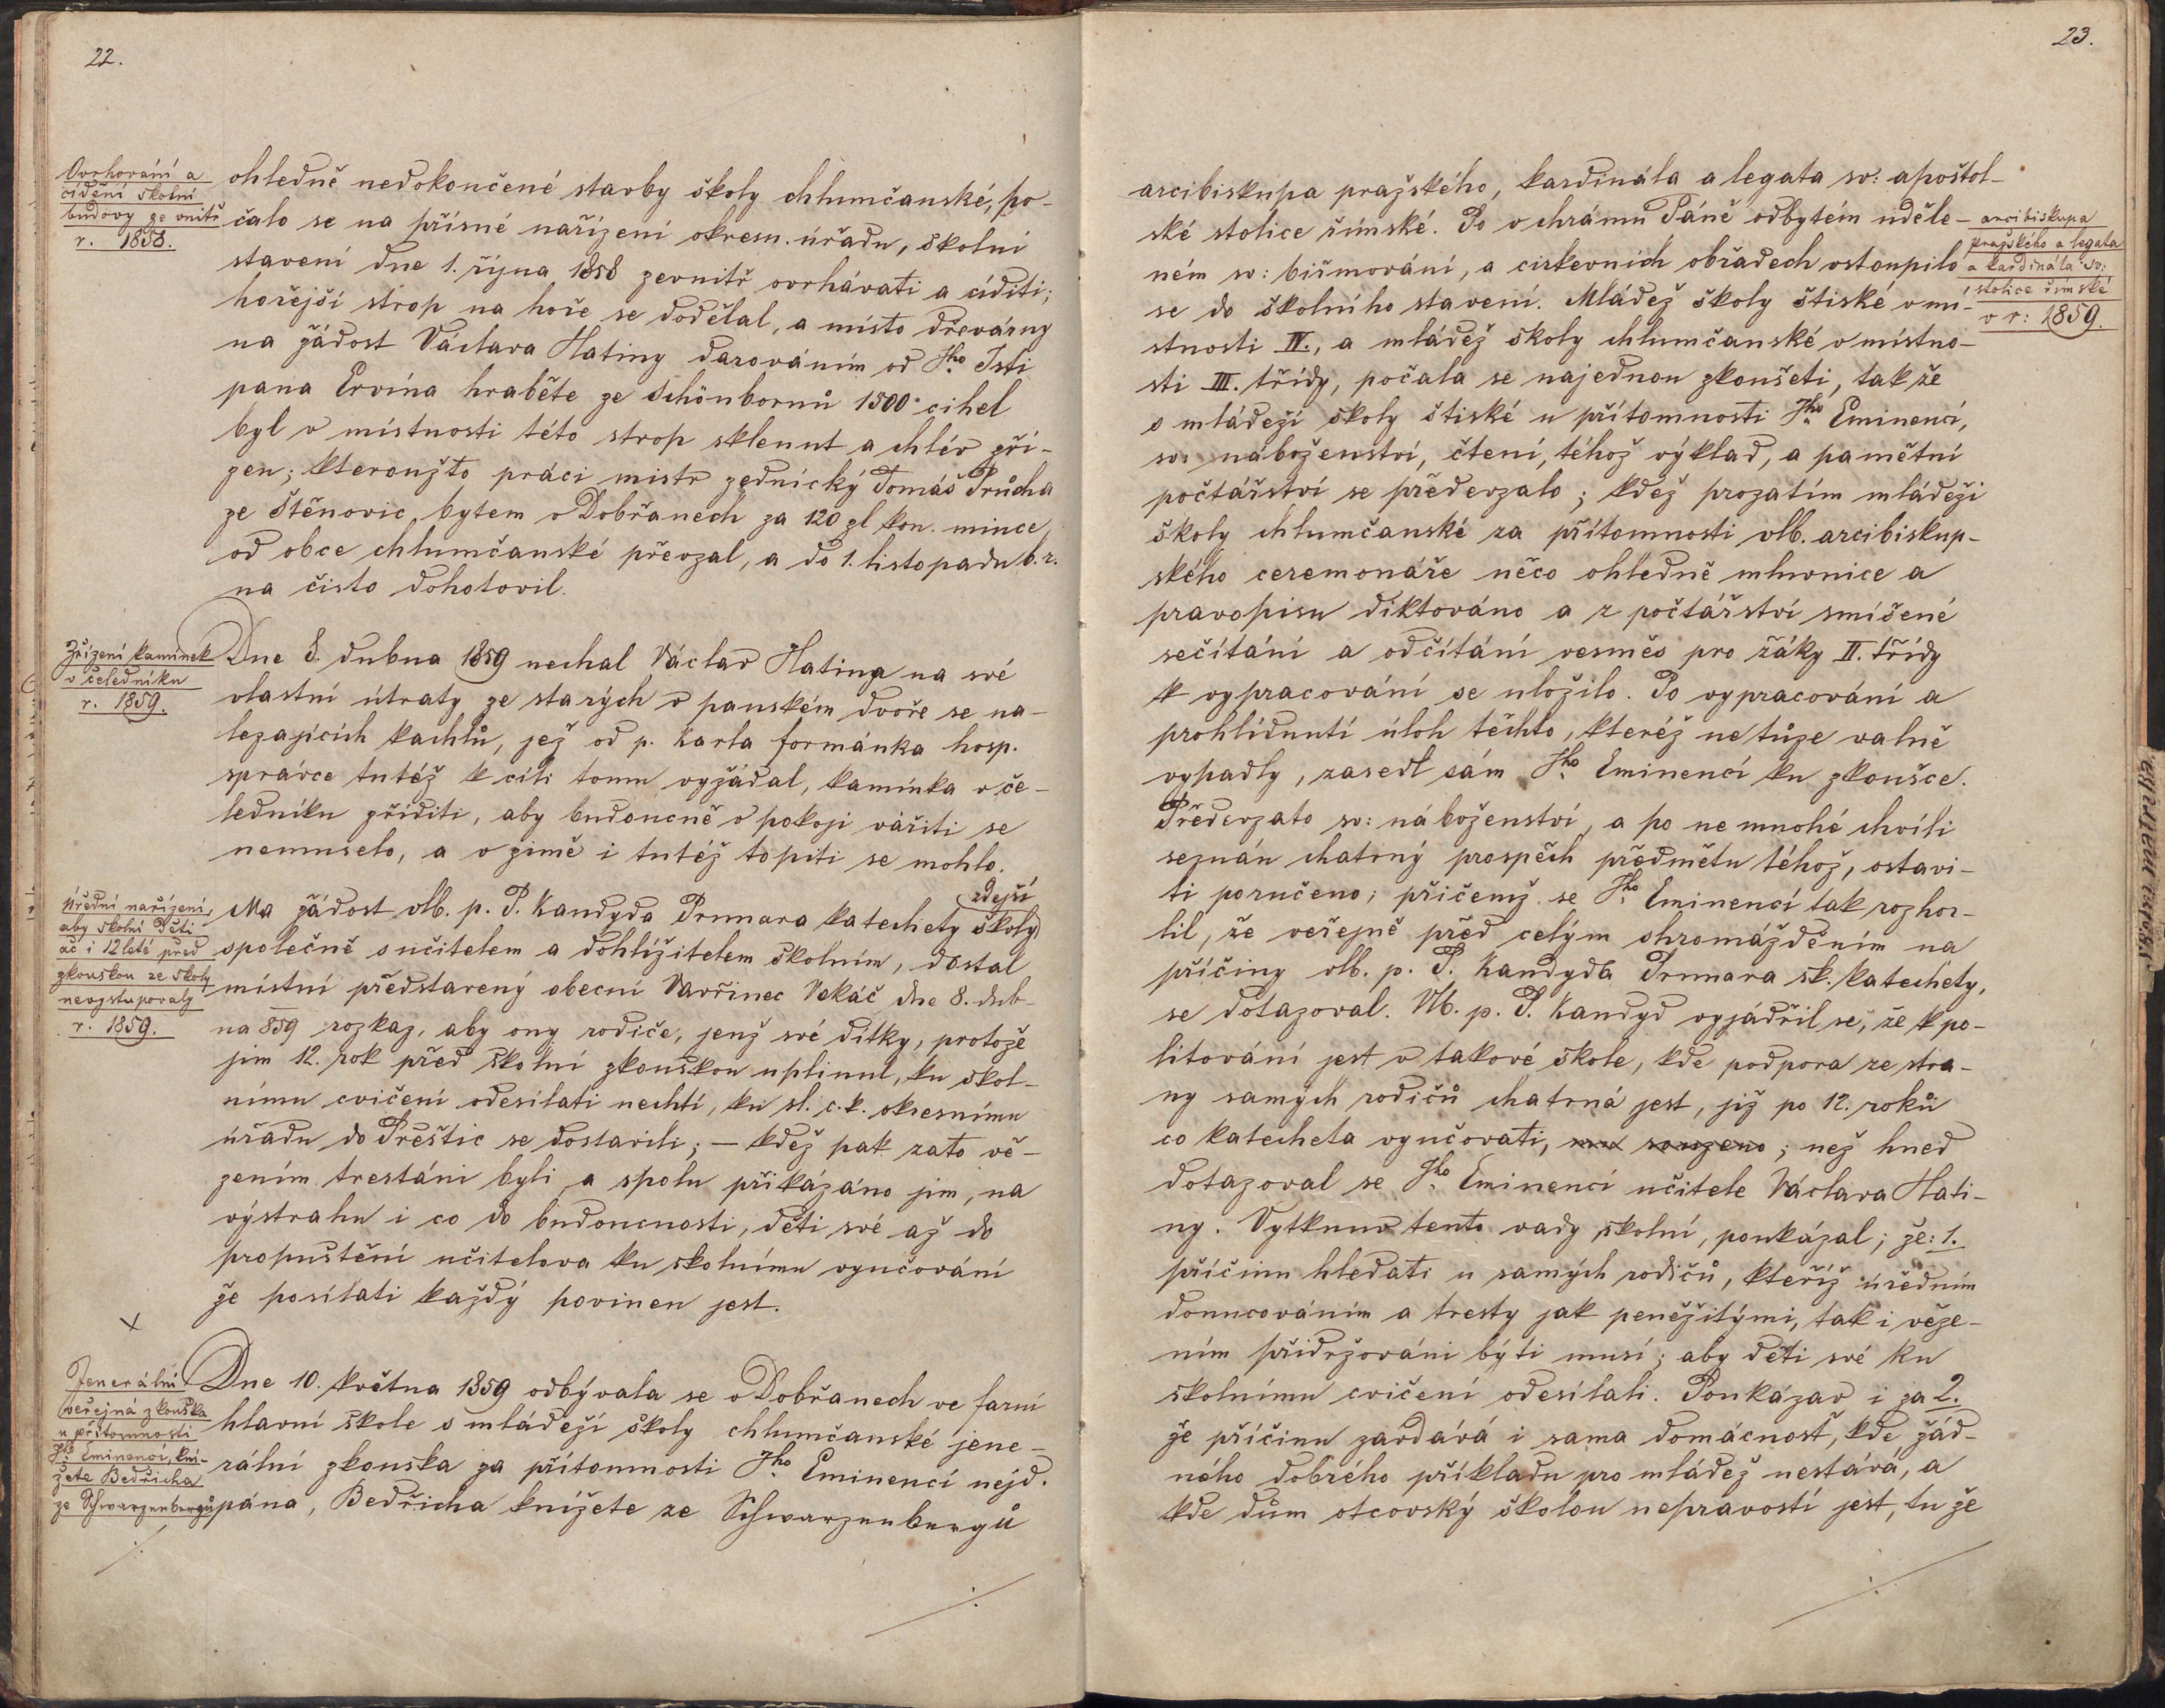 22.
Ovrhování a
cídění školní
budovy ze vnitř
r. 1858.
ohledně nedokončené stavby školy chlumčanské, po-
čalo se na přísné nařízení okresn. úřadu, školní
stavení dne 1. října 1858 zevnitř ovrhávati a cíditi;
hořejší strop na hoře se dodělal, a místo dřevárny
na žádost Václava Hatiny darováním od Jho Jsti
pana Ervína hraběte ze Schönbornů 1500 cihel
byl v místnosti této strop sklenut a chlév zří-
zen; kteroužto práci mistr zednický Tomáš Průcha
ze Štěnovic, bytem v Dobřanech za 120 zl kon. mince
od obce chlumčanské převzal, a do 1. listopadu b. r.
na čisto dohotovil.
Zřízení kamínek
v čeledníku
r. 1859.
Dne 8. dubna 1859 nechal Václav Hatina na své
vlastní útraty ze starých v panském dvoře se na-
lezajících kachlů, jež od p. Karla formánka hosp.
správce tutéž k cíli tomu vyžádal, kamínka v če-
ledníku zříditi, aby budoucně v pokoji vářiti se
nemuselo, a v zimě i tutéž topiti se mohlo.
přední nařízení,
aby školní děti
ač i 12 leté před
zkouškou ze školy
nevystupovaly
r. 1859.
zdejší
Na žádost vlb. p. P. Kandyda Prumara katechety školy
společně s učitelem a dohlížitelem školním, dostal
místní představený obecní Vavřinec Vokáč dne 8. dub-
na 859 rozkaz, aby ony rodiče, jenž své dítky, protože
jim 12. rok před školní zkouškou uplinul, ku škol-
nímu cvičení odesílati nechtí, ku sl. c. k. okresnímu
úřadu do Přeštic se dostavili; — kdež pak zato vě-
zením trestáni byli a spolu přikázáno jim, na
výstrahu i co do budoucnosti, děti své až do
propuštění učitelova ku školnímu vyučování
že posílati každý povinen jest.
Jenerální
veřejná zkouška
u přítomnosti
Jho Eminencí, kní-
žete Bedřicha
ze Schwarzenbergů
Dne 10. května 1859 odbývala se v Dobřanech ve farní
hlavní škole s mládeží školy chlumčanské jene-
rální zkouška za přítomnosti Jho Eminencí nejd.
pána, Bedřicha knížete ze Schwarzenbergů
23.
arcibiskupa pražského, kardinála a legata sv: apoštol-
ské stolice římské. Po v chrámu Páně odbytém uděle-
ném sv: biřmování, a církevních obřadech vstoupilo
se do školního stavení. Mládež školy štiské v mí-
stnosti IV., a mládež školy chlumčanské v místno-
sti III. třídy, počala se najednou zkoušeti, tak že
s mládeží školy štiské u přítomnosti Jho Eminencí,
sv: náboženství, čtení, téhož výklad, a pamětní
počtářství se předevzalo; kdež prozatím mládeži
školy chlumčanské za přítomnosti vlb. arcibiskup-
ského ceremonáře něco ohledně mluvnice a
pravopisu diktováno a z počtářství smíšené
sečítání a odčítání vesměs pro žáky II. třídy
k vypracování se uložilo. Po vypracování a
prohlídnutí úloh těchto, kteréž ne tůze valně
vypadly, zasedl sám Jho Eminencí ku zkoušce.
Předevzato sv: náboženství, a po ne mnohé chvíli
seznán chatrný prospěch předmětu téhož, ostavi-
ti poručeno; přičemž se Jho Eminencí tak rozhor-
lil, že veřejně před celým shromážděním na
příčiny vlb. p. P. Kandyda Prumara šk. katechety,
se dotazoval. Vlb. p. P. Kandyd vyjádřil se, že k po-
litování jest v takové škole, kde podpora ze stra-
ny samých rodičů chatrná jest, již po 12. roků
co katecheta vyučovati, mu souzeno; než hned
dotazoval se Jho Eminencí učitele Václava Hati-
ny. Vytknuv tento vady školní, poukázal; že: 1.
příčinu hledati u samých rodičů, kteříž úředním
donucováním a tresty jak peněžitými, tak i věze-
ním přidržováni býti musí; aby děti své ku
školnímu cvičení odesílali. Poukázav i za 2.
že příčinu zavdává i sama domácnost, kde žád-
ného dobrého příkladu pro mládež nestává, a
kde dům otcovský školou nepravostí jest, tu že
arcibiskupa
pražského a legata
a kardinála sv:
stolice římské
v r: 1859.